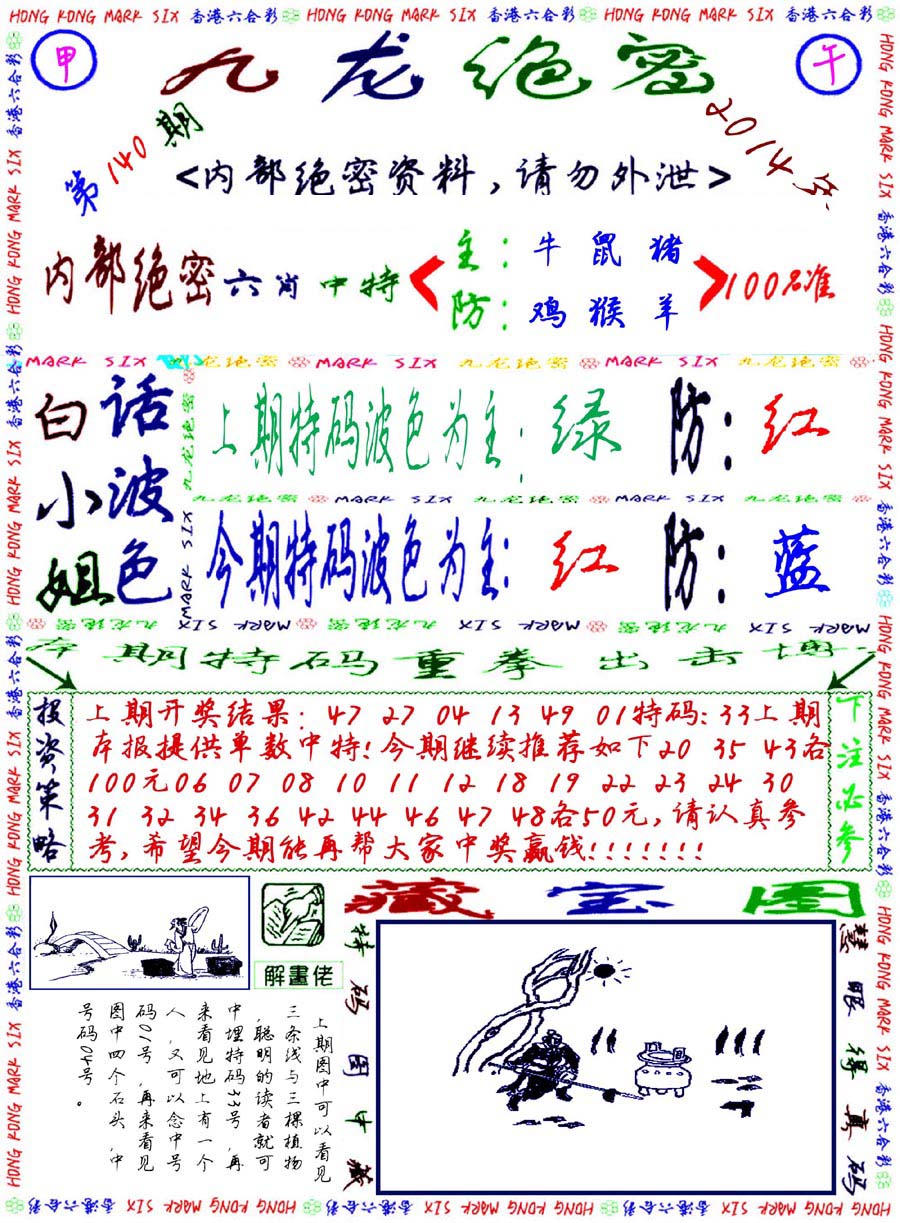 HONG KONG MARK SIX 香港六合彩 HONG KONG MARK SIX 香港六合彩 HONG KONG MARK SIX 香港六合彩
甲
九龙绝密
午
第140期
2014年
<内部绝密资料，请勿外泄>
内部绝密六肖中特
主：牛 鼠 猪
防：鸡 猴 羊
100名准
MARK SIX 九龙绝密 MARK SIX 九龙绝密 MARK SIX 九龙绝密
白小姐
话波色
上期特码波色为主：绿 防：红
九龙绝密 MARK SIX 九龙绝密 MARK SIX 九龙绝密
今期特码波色为主：红 防：蓝
MARK SIX 九龙绝密 MARK SIX 九龙绝密 MARK SIX 九龙绝密
本期特码重拳出击博
投资策略
上期开奖结果：47 27 04 13 49 01特码：33上期
本报提供单数中特！今期继续推荐如下20 35 43各
100元06 07 08 10 11 12 18 19 22 23 24 30
31 32 34 36 42 44 46 47 48各50元，请认真参
考，希望今期能再帮大家中奖赢钱！！！！！！！
下注必参
解畫佬
藏宝图
上期图中可以看见
三条线与三棵植物
，聪明的读者就可
中埋特码33号，再
来看见地上有一个
人，又可以念中号
码01号，再来看见
图中四个石头，中
号码04号。
特码图中藏
慧眼得真码
HONG KONG MARK SIX 香港六合彩 HONG KONG MARK SIX 香港六合彩 HONG KONG MARK SIX 香港六合彩